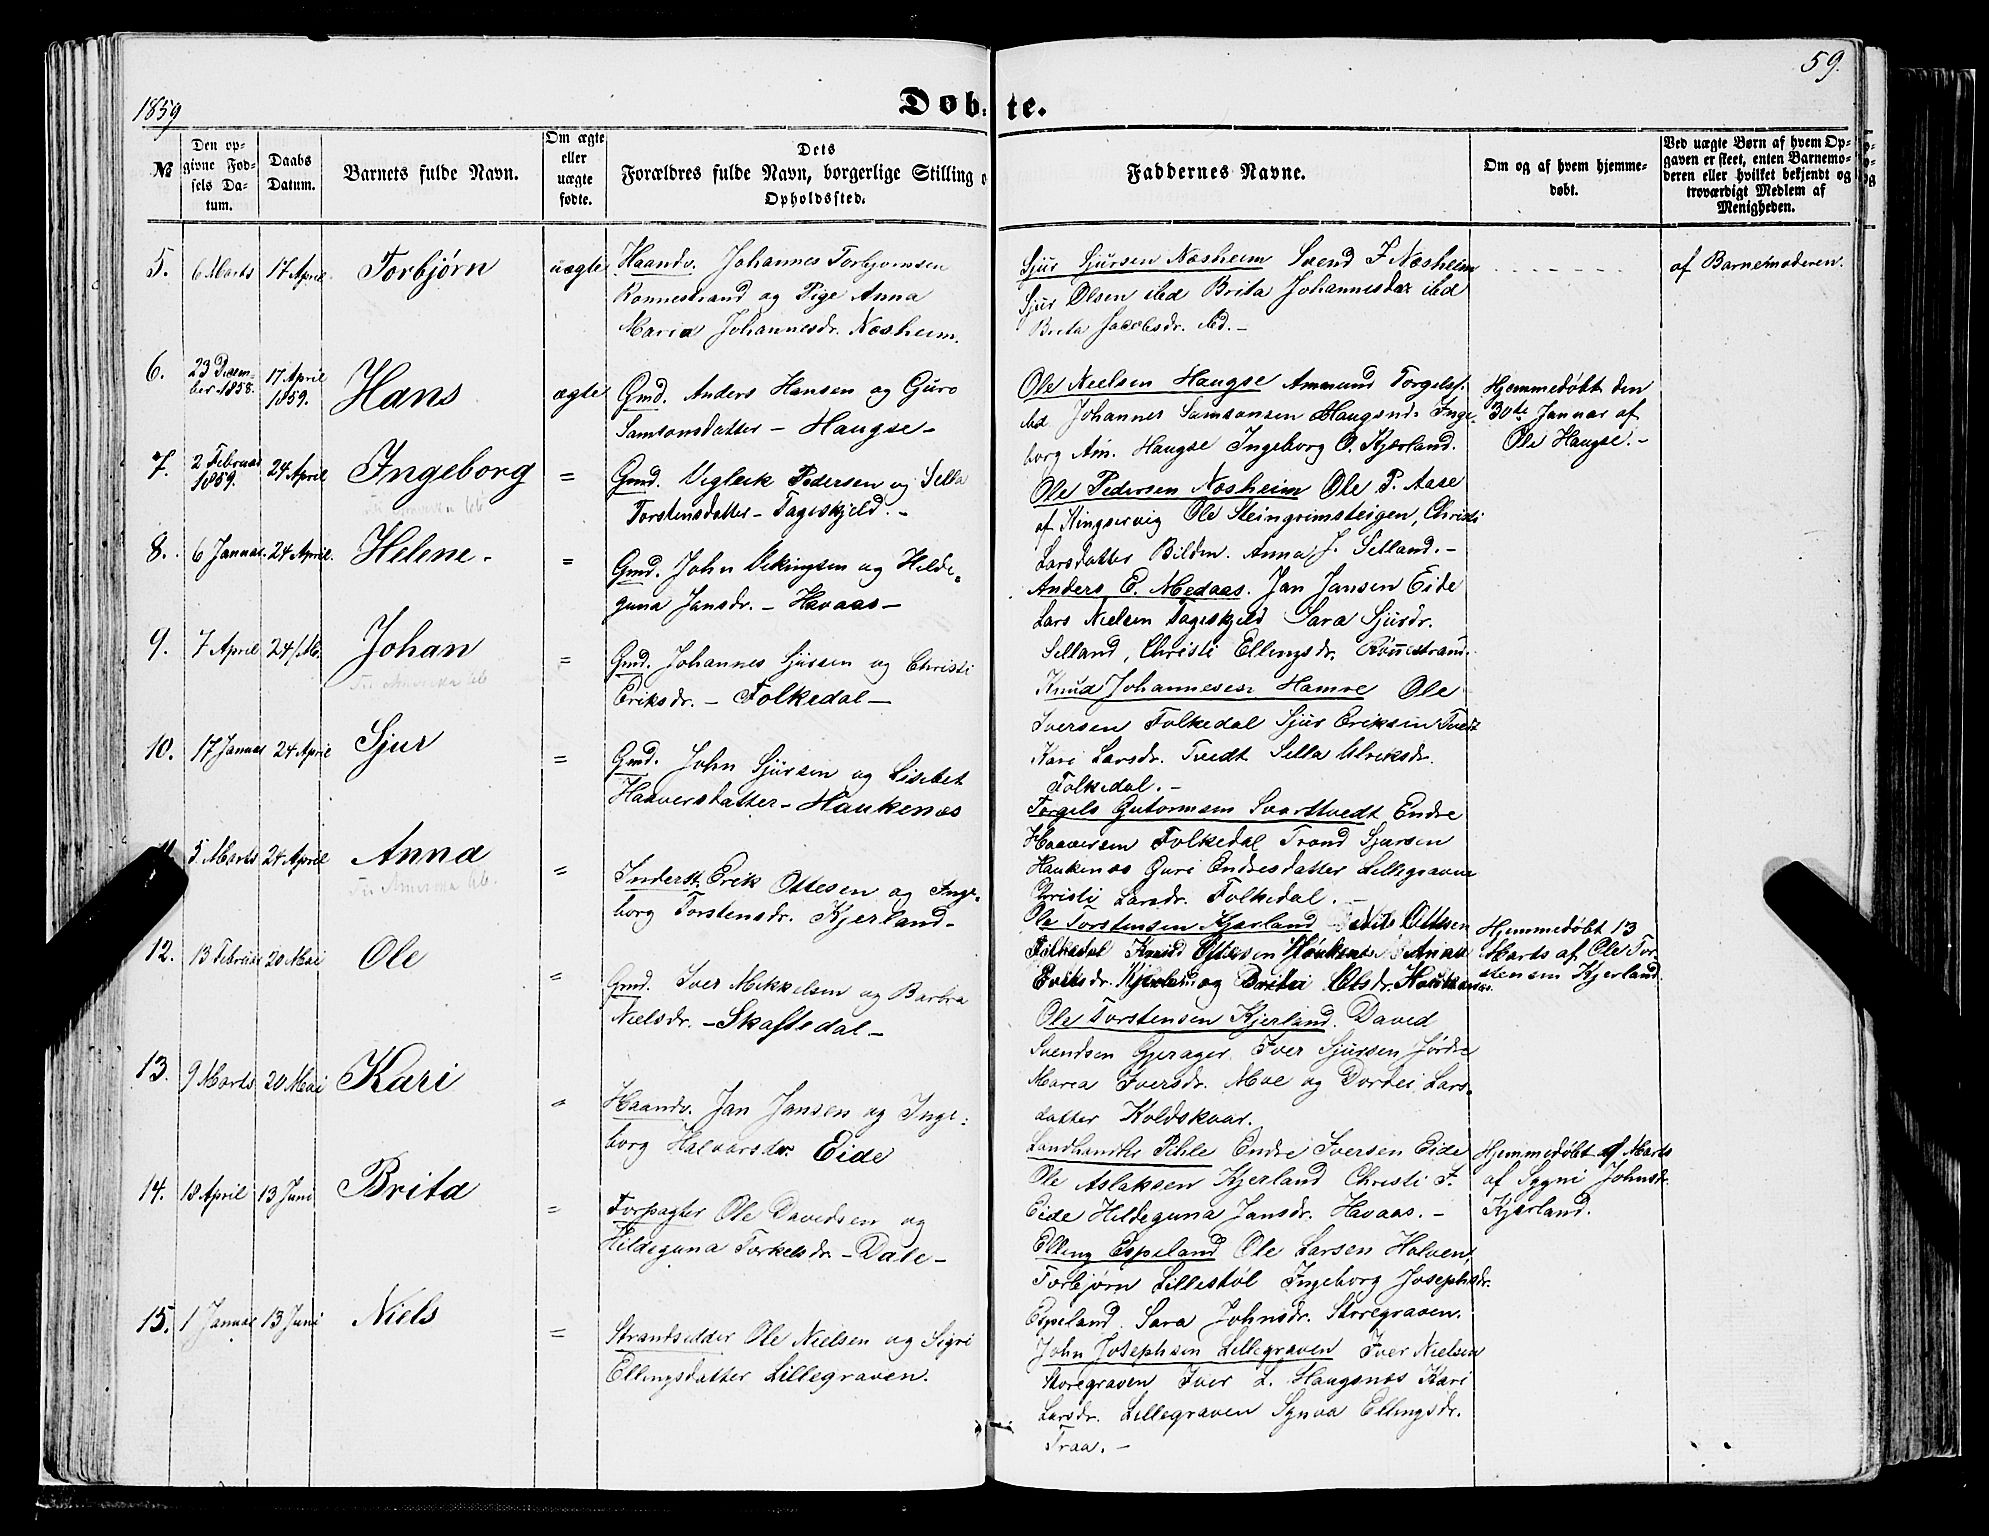 59.
1859
Døb- te.
№
Den op-
givne Fød-
sels Da-
tum.
Daabs
Datum.
Barnets fulde Navn.
Om ægte
eller
uægte
fødte.
Dets
Forældres fulde Navn, borgerlige Stilling o
Opholdssted.
Faddernes Navne.
Om og af hvem hjemme-
døbt.
Ved uægte Børn af hvem Op-
gaven er skeet, enten Barnemo-
deren eller hvilket bekjendt og
troværdigt Medlem af
Menigheden.
5. 6 Marts 17 April Torbjørn uægte
Haandv. Johannes Torbjørnsen
Ronnestrand og Pige Anna
Maria Johannesdr. Næsheim.
Sjur Sjursen Næsheim Svend J Næsheim
Sjur Olsen ibd Brita Johannesdar ibd
Brita Jacobsdr. ibd. -
af Barnemoderen.
6. 23 Decem-
ber 1858. 17 April
1859. Hans ægte
Gmd. Anders Hansen og Guro
Samsonsdatter - Haugse -
Ole Nielsen Haugse Ammund Torgelsf.
ibd Johannes Samsonsen Haugsnd. Inge-
borg Am. Haugse Ingeborg O. Kjerland.
Hjemmedøbt den
30te Januar af
Ole Haugse. -
7. 2 Februar
1859. 24 April Ingeborg =
Gmd. Vigleik Pedersen og Sella
Torstensdatter - Fageskjeld. -
Ole Pedersen Næsheim Ole P. Aase
af Kingservig Ole Steingrimsteigen, Christi
Larsdatter Bilden. Anna J. Selland. -
8. 6 Januar. 24 April. Helene. =
Gmd. John Vikingsen og Hilde-
guna Jansdr. - Havaas -
Anders E. Medaas. Jan Jansen Eide
Lars Nielsen Fageskjeld Sara Sjursdr.
Selland, Christi Ellingsdr. Rönnestrand.
9. 7 April 24/M. Johan =
Til Amerika
Gmd. Johannes Sjursen og Christi
Eriksdr. - Folkedal -
Knud Johannesen Hamre Ole
Iversen Folkedal Sjur Eriksen Tvedt
Kari Larsdr. Tvedt Sella Ulriksdr.
Folkedal. -
10. 17 Januar 24 April Sjur =
Gmd. John Sjursen og Lisebet
Haaversdatter - Haukenæs
Torgils Gutormsen Svarttvedt Endre
Haaversen Folkedal Trond Sjursen
Haukenæs Guri Endresdatter Lillegraven
Christi Larsdr. Folkedal. -
5 Marts 24 April Anna =
Til Amerika
Inderst. Erik Ottesen og Inge-
borg Torstensdr. Kjerland -
Ole Torstensen Kjerland Ottesen
Knud Ottesen
Eriksdr. Kjerland og
Hjemmedøbt 13
Marts af Ole Tor-
stensen Kjerland.
12. 13 Februar 20 Mai Ole =
Gmd. Iver Mikkelsen og Barbra
Nielsdr. - Skaftedal -
Ole Torstensen Kjerland. David
Svendsen Gjerager. Iver Sjursen Jørdre
Maria Iversdr. Moe og Dortei Lars-
datter Koldskaar.
13. 9 Marts 20 Mai Kari =
Haandv. Jan Jansen og Inge-
borg Halvorsdr. Eide
Landhandler Pehle Endre Iversen Eide
Ole Aslaksen Kjerland Christi F.
Eide Hildeguna Jansdr. Havaas. -
Hjemmedøbt 9 Marts
af Sygni Johnsdr.
Kjerland.
14. 18 April 13 Juni Brita =
Forpagter Ole Davidsen og
Hildeguna Torkelsdr. - Dale -
Elling Espeland Ole Larsen Holven,
Torbjørn Lillestøl Ingeborg Josephsdr.
Espeland. Sara Johnsdr. Storegraven.
15. 1 Januar 13 Juni Niels =
Strandsidder Ole Nielsen og Sigri
Ellingsdatter Lillegraven.
John Josephsen Lillegraven Iver Nielsen
Storegraven Iver L. Haugsnæs Kari
Larsdr. Lillegraven Synva Ellingsdr.
Traa. -